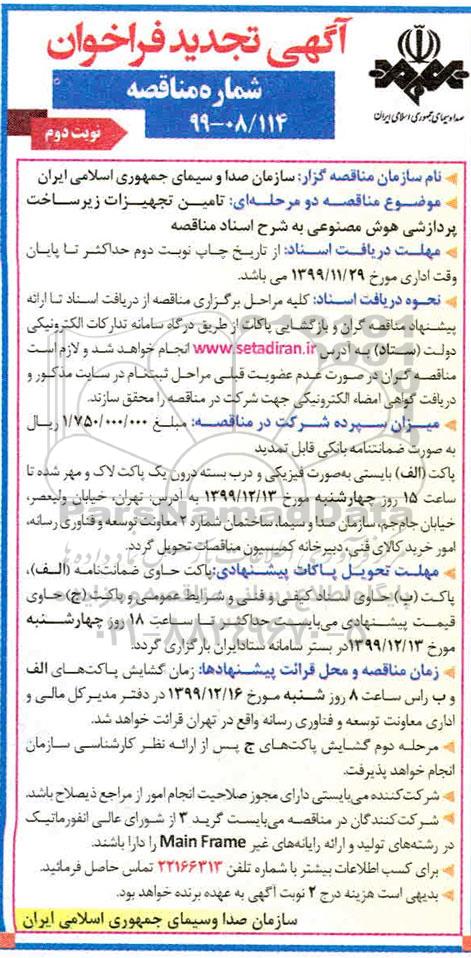 آگهی تجدید فراخوان
شماره مناقصه
۹۹-۰۸/۱۱۴
نوبت دوم
صدا و سیمای جمهوری اسلامی ایران
نام سازمان مناقصه گزار: سازمان صدا و سیمای جمهوری اسلامی ایران
موضوع مناقصه دو مرحله‌ای: تامین تجهیزات زیرساخت
پردازشی هوش مصنوعی به شرح اسناد مناقصه
مهلت دریافت اسناد: از تاریخ چاپ نوبت دوم حداکثر تا پایان
وقت اداری مورخ ۱۳۹۹/۱۱/۲۹ می باشد.
نحوه دریافت اسناد: کلیه مراحل برگزاری مناقصه از دریافت اسناد تا ارائه
پیشنهاد مناقصه گران و بازگشایی پاکات از طریق درگاه سامانه تدارکات الکترونیکی
دولت (ستاد) به آدرس www.setadiran.ir انجام خواهد شد و لازم است
مناقصه گران در صورت عدم عضویت قبلی مراحل ثبتنام در سایت مذکور و
دریافت گواهی امضاء الکترونیکی جهت شرکت در مناقصه را محقق سازند.
میزان سپرده شرکت در مناقصه: مبلغ ۱/۷۵۰/۰۰۰/۰۰۰ ریال
به صورت ضمانتنامه بانکی قابل تمدید
پاکت (الف) بایستی به‌صورت فیزیکی و درب بسته درون یک پاکت لاک و مهر شده تا
ساعت ۱۵ روز چهارشنبه مورخ ۱۳۹۹/۱۲/۱۳ به آدرس: تهران، خیابان ولیعصر،
خیابان جام‌جم، سازمان صدا و سیما، ساختمان شماره ۲ معاونت توسعه و فناوری رسانه،
امور خرید کالای فنی، دبیرخانه کمیسیون مناقصات تحویل گردد.
مهلت تحویل پاکات پیشنهادی: پاکت حاوی ضمانت‌نامه (الف)،
پاکت (ب) حاوی اسناد کیفی و فنی و شرایط عمومی و پاکت (ج) حاوی
قیمت پیشنهادی می‌بایست حداکثر تا ساعت ۱۸ روز چهارشنبه
مورخ ۱۳۹۹/۱۲/۱۳ در بستر سامانه ستادایران بارگزاری گردد.
زمان مناقصه و محل قرائت پیشنهادها: زمان گشایش پاکت‌های الف
و ب راس ساعت ۸ روز شنبه مورخ ۱۳۹۹/۱۲/۱۶ در دفتر مدیرکل مالی و
اداری معاونت توسعه و فناوری رسانه واقع در تهران قرائت خواهد شد.
مرحله دوم گشایش پاکت‌های ج پس از ارائه نظر کارشناسی سازمان
انجام خواهد پذیرفت.
شرکت‌کننده می‌بایستی دارای مجوز صلاحیت انجام امور از مراجع ذیصلاح باشد.
شرکت کنندگان در مناقصه می‌بایست گرید ۳ از شورای عالی انفورماتیک
در رشته‌های تولید و ارائه رایانه‌های غیر Main Frame را دارا باشند.
برای کسب اطلاعات بیشتر با شماره تلفن ۲۲۱۶۶۳۱۳ تماس حاصل فرمائید.
بدیهی است هزینه درج ۲ نوبت آگهی به عهده برنده خواهد بود.
سازمان صدا وسیمای جمهوری اسلامی ایران
ParsNamadData
۰۲۱-۸۸۳۴۹۶۷۰-۵